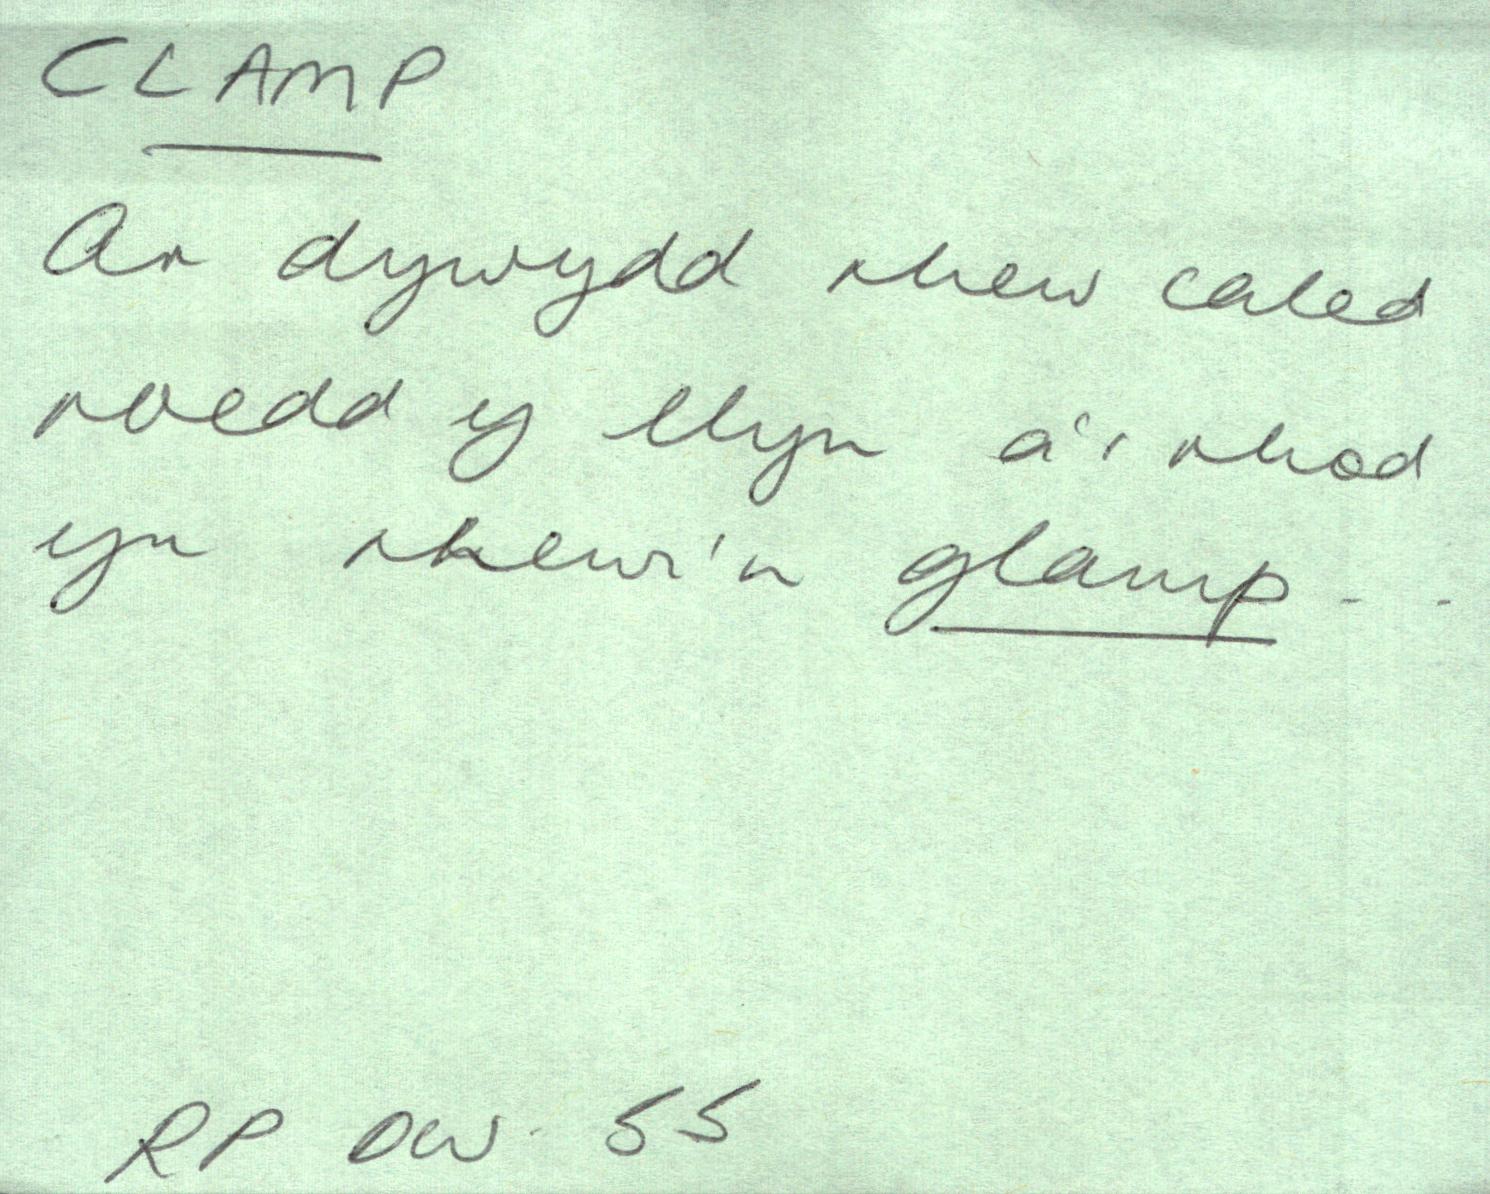 CLAMP
Ar dywydd rhew caled
roedd y llyn a'r rhod
yn rhewi'n glamp - -
RP DW. 55